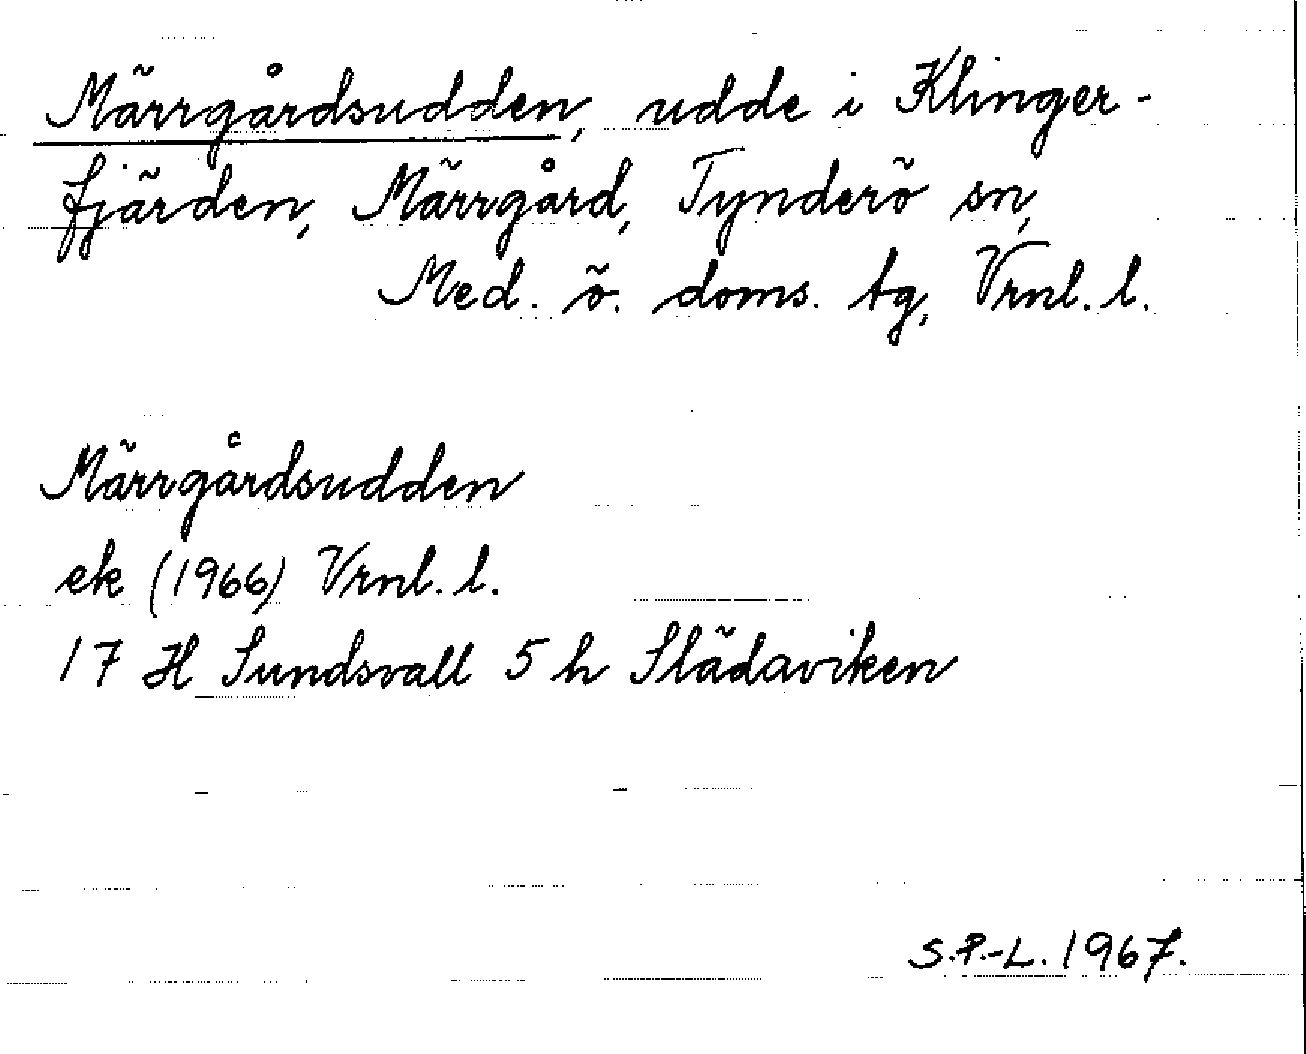 Märrgårdsudden, udde i Klinger-
fjärden, Märrgård, Tynderö sn,
Med. ö. doms. tg, Vrnl. l.
Märrgårdsudden
ek (1966) Vrnl. l.
17 H Sundsvall 5 h Slädaviken
S.P.-L. 1967.